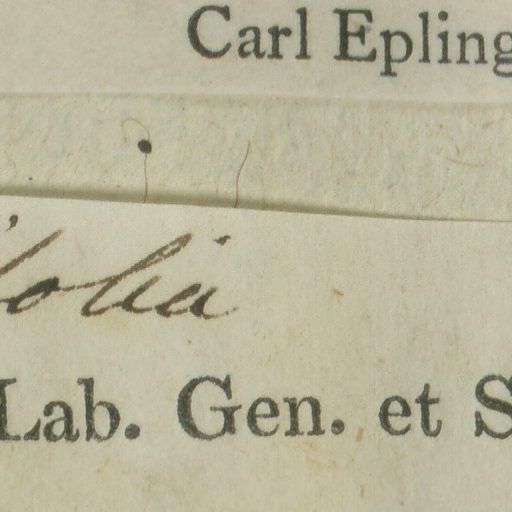 Carl Epling
folia
Lab. Gen. et S